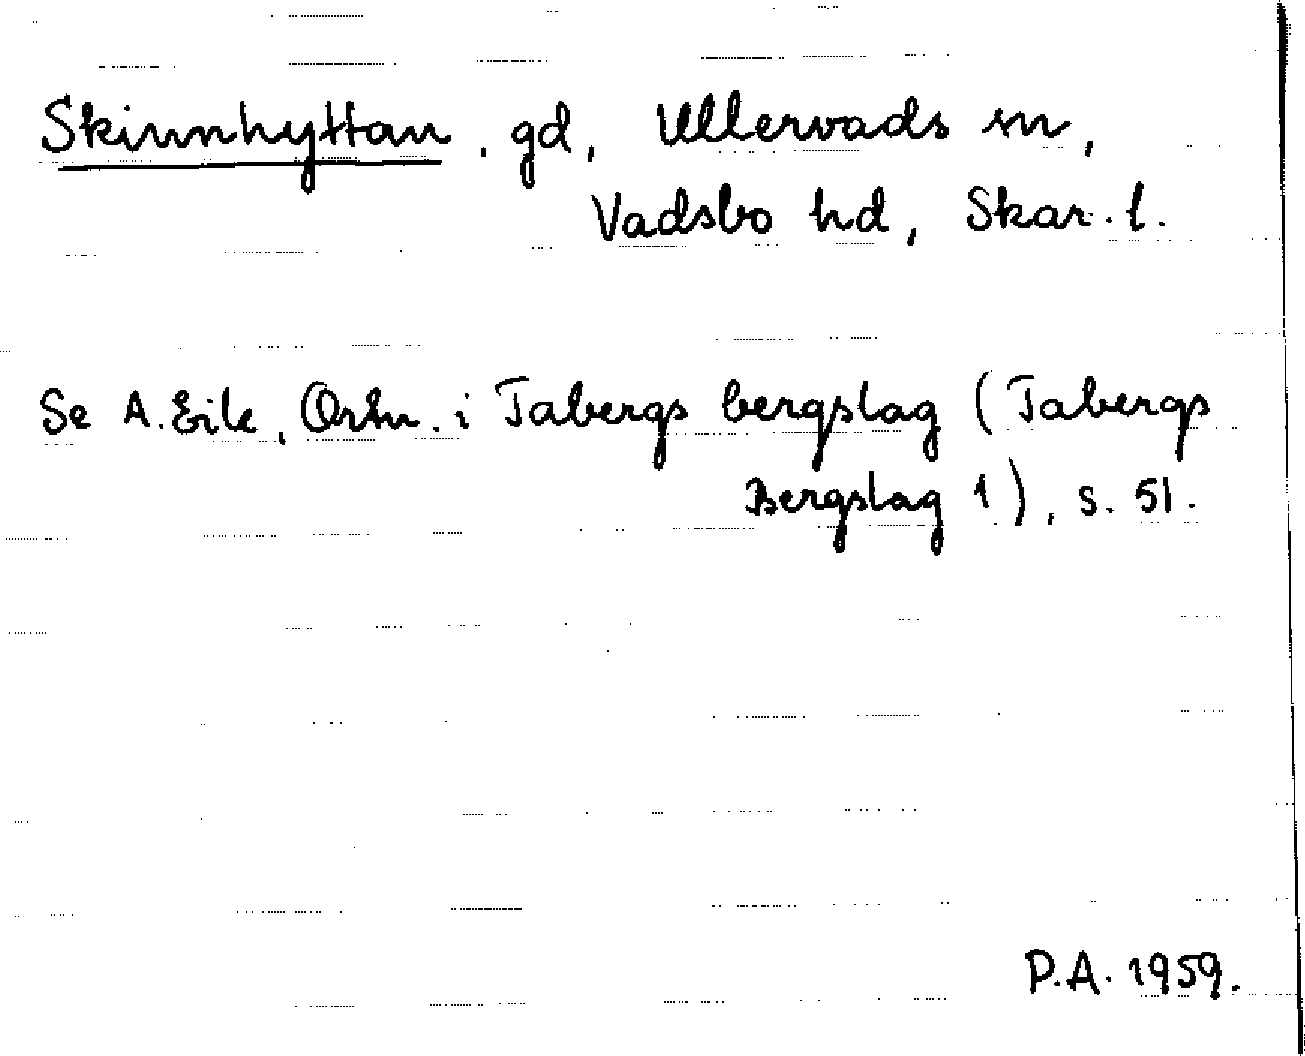 Skinnhyttan, gd, Ullervads sn,
Vadsbo hd, Skar. l.
Se A. Eile, Ortn. i Tabergs bergslag (Tabergs
Bergslag 1), s. 51.
P.A. 1959.